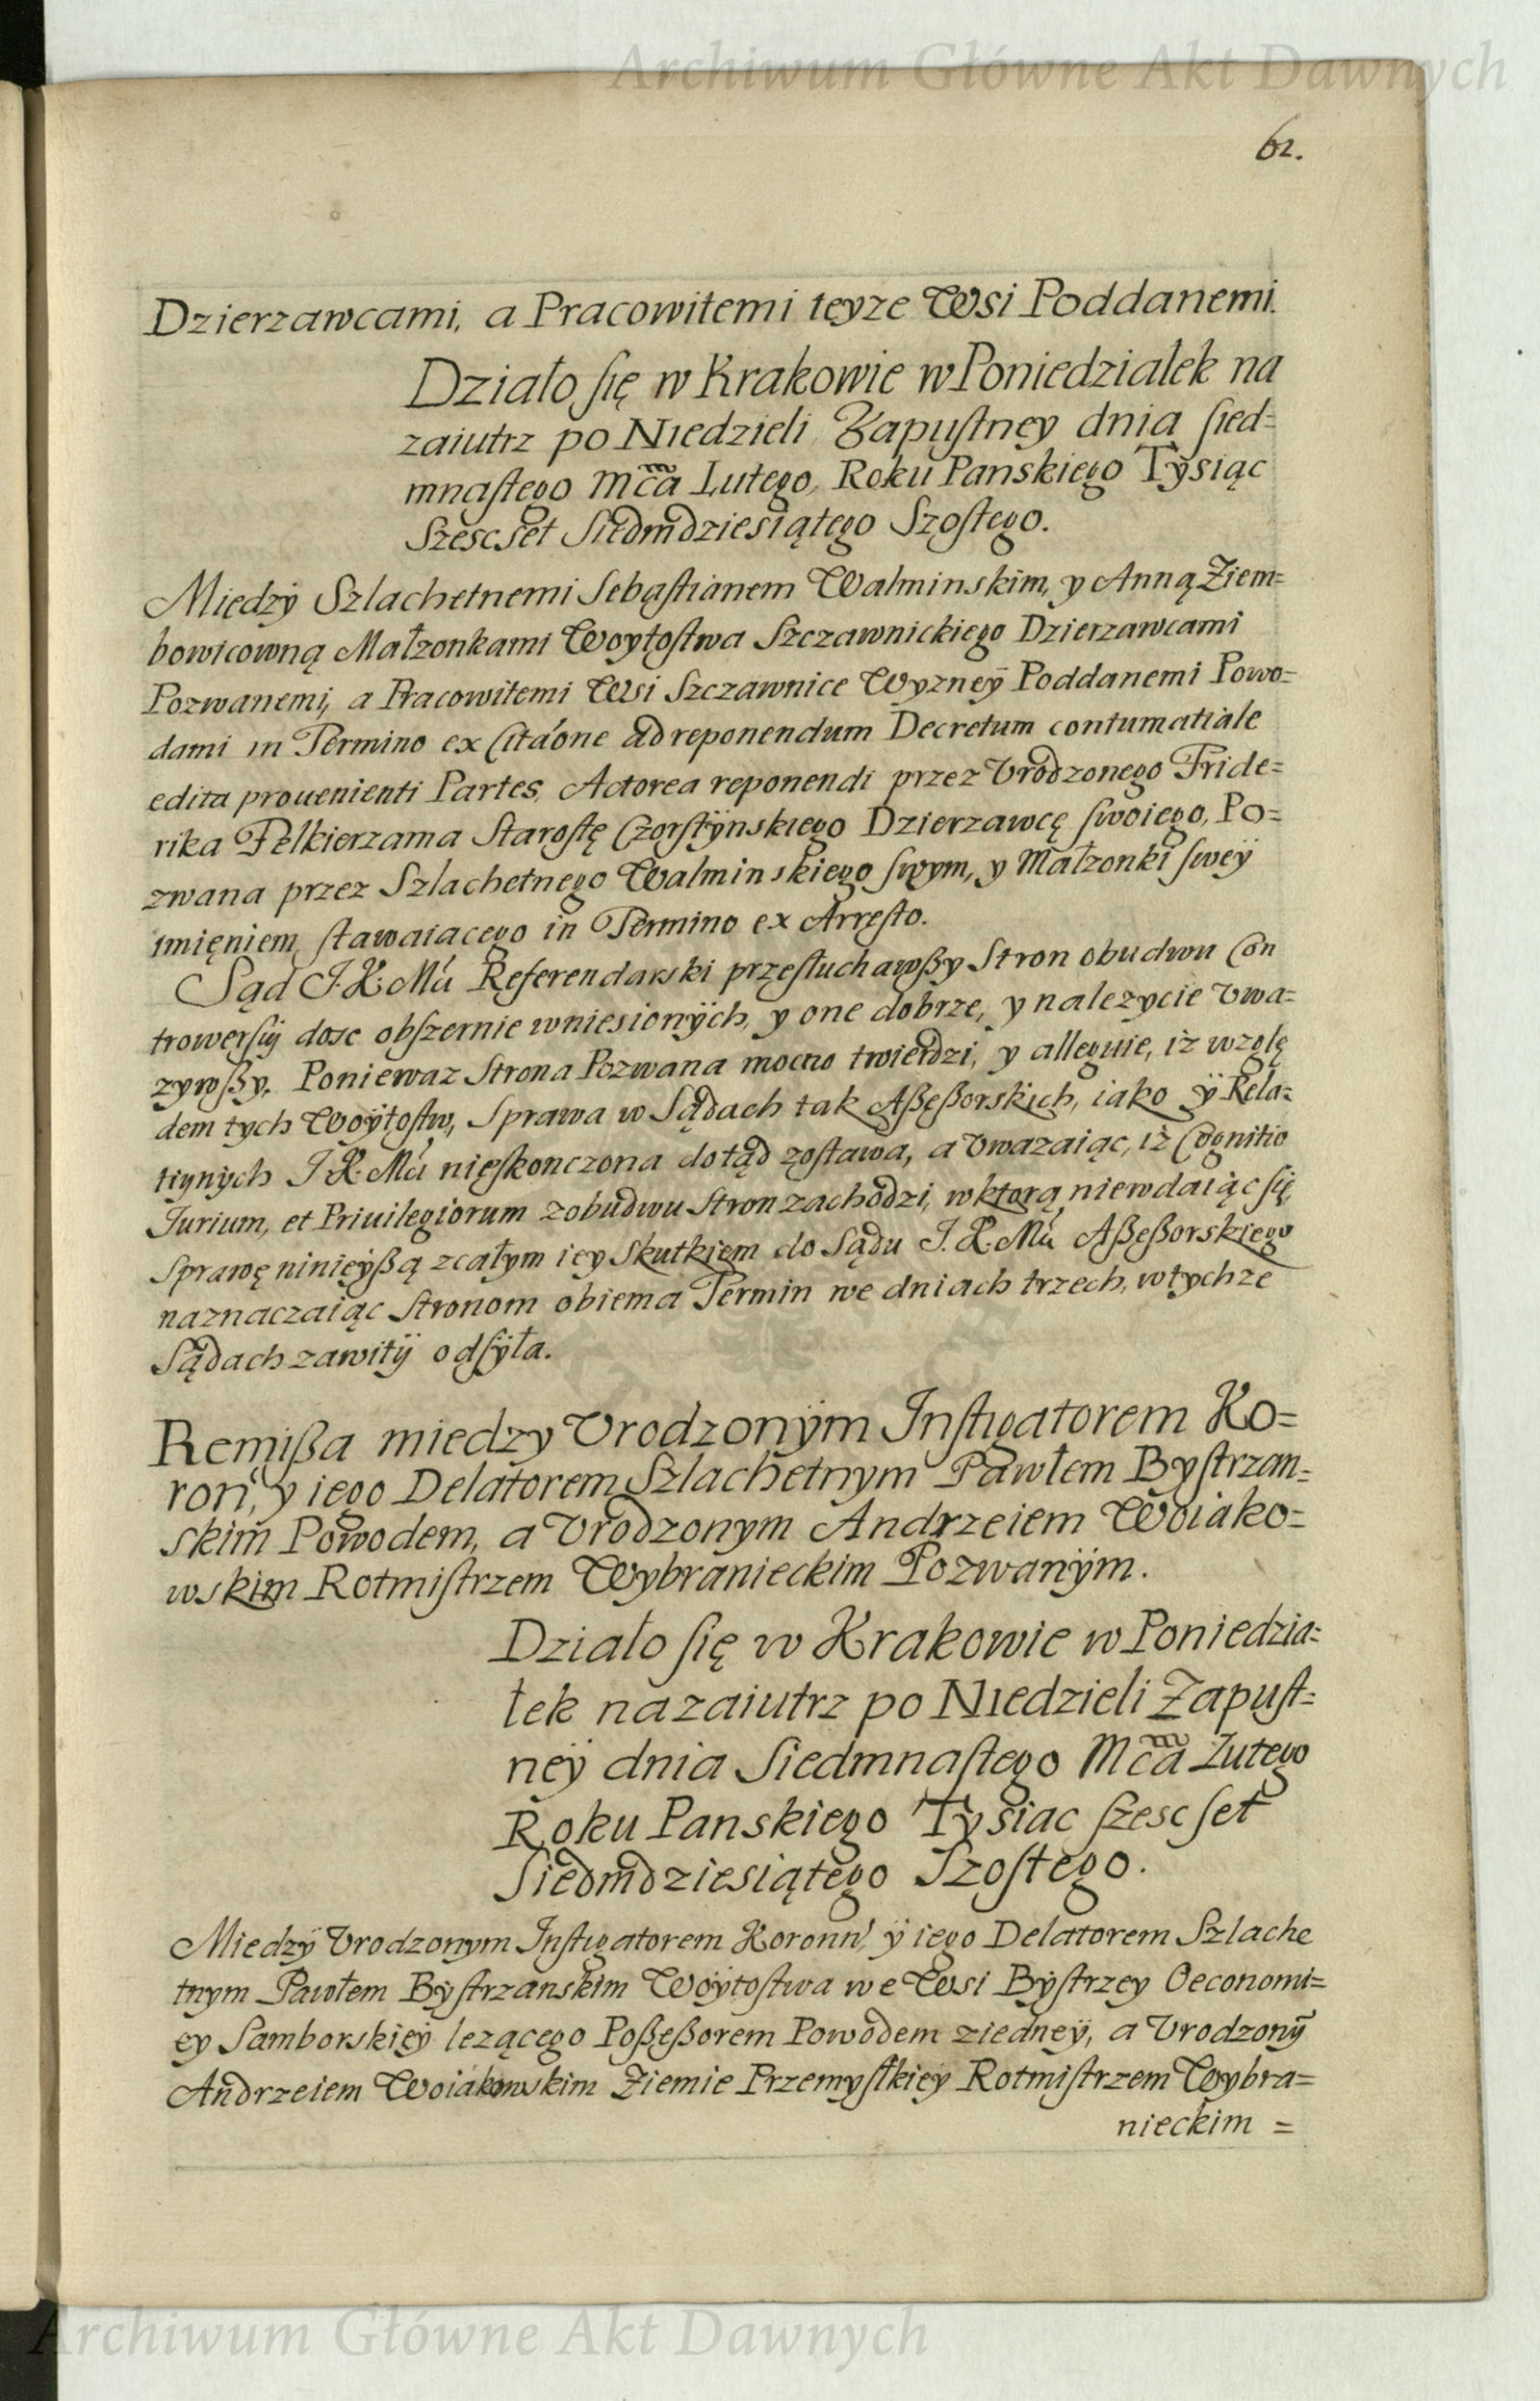 Archiwum Główne Akt Dawnych
62.
Dzierzawcami, a Pracowitemi teyze Wsi Poddanemi.
Działo się w Krakowie w Poniedziałek na
zaiutrz po Niedzieli Zapustney dnia sied=
mnastego Mca Lutego, Roku Panskiego Tysiąc
Szescset Siedmdziesiątego Szostego.
Między Szlachetnemi Sebastianem Walminskim, y Anną Ziem=
bowicowną Małzonkami Woytostwa Szczawnickiego Dzierzawcami
Pozwanemi, a Pracowitemi Wsi Szczawnice Wyzney Poddanemi Powo=
dami in Termino ex Citáone ad reponendum Decretum contumatiale
edita prouenienti Partes, Actorea reponendi przez Vrodzonego Fride=
rika Felkierzama Starostę Czorstÿnskiego Dzierzawcę swoiego, Po=
zwana przez Szlachetnego Walminskiego swym, y Małzonki sweÿ
imięniem stawaiacego in Termino ex Arręsto.
Sąd J. K. Mći Referendarski przęsłuchawßy Stron obudwu Con
trowersÿ dosc obszernie wniesionÿch, y one dobrze, y nalezycie Vwa=
zywßy, Poniewaz Strona Pozwana mocno twierdzi, y alleguie, iż wzglę
dem tych Woÿtostw, Sprawa w Sądach tak Aßęßorskich, iako ÿ Rela=
tiynych J. K. Mći nięskonczona dotąd zostawa, a Vwazaiąc, iż Cognitio
Jurium, et Priuilegiorum zobudwu Stron zachodzi, wktorą niewdaiąc się,
Sprawę ninieyßą zcałym iey Skutkięm do Sądu J. K. Mći Aßeßorskiego
naznaczaiąc Stronom obiema Termin we dniach trzech, wtychze
Sądach zawitÿ odsÿła.
Remißa miedzy Vrodzonÿm Instigatorem Ko=
ron, y iego Delatorem Szlachetnym Pawłem Bystrzan=
skim Powodem, a Vrodzonym Andrzeiem Woiako=
wskim Rotmistrzem Wybranieckim Pozwanÿm.
Działo się w Krakowie w Poniedzia=
łek nazaiutrz po Niedzieli Zapust=
neÿ dnia Siedmnastego Mca Lutego
Roku Panskiego Tysiac szescset
Siedmdziesiątego Szostego.
Miedzÿ Vrodzonym Instigatorem Koronn, ÿ iego Delatorem Szlache
tnym Pawłem Bÿstrzanskim Woÿtostwa we Wsi Bÿstrzey Oeconomi=
ey Samborskieÿ lezącego Poßęßorem Powodem ziedneÿ, a Vrodzonÿ
Andrzeiem Woiakowskim Ziemie Przemyslkieÿ Rotmistrzem Wybra=
nieckim =
Archiwum Główne Akt Dawnych